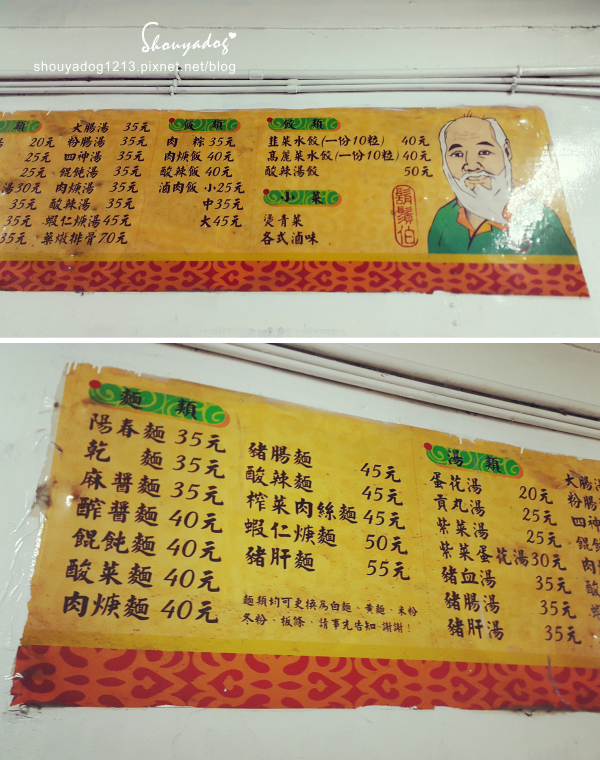 Shouyadog
shouyadog1213.pixnet.net/blog
類
20元
25元
25元
湯30元
35元
35元
35元
大腸湯 35元
粉腸湯 35元
四神湯 35元
餛飩湯 35元
肉焿湯 35元
酸辣湯 35元
蝦仁焿湯45元
藥燉排骨70元
飯 類
肉 粽35元
肉焿飯 40元
酸辣飯 40元
滷肉飯 小25元
中35元
大45元
餃 類
韮菜水餃(一份10粒) 40元
高麗菜水餃(一份10粒)40元
酸辣湯餃 50元
小 菜
燙青菜
各式滷味
鬍鬚伯
麵 類
陽春麵 35元
乾 麵 35元
麻醬麵 35元
醡醬麵 40元
餛飩麵 40元
酸菜麵 40元
肉焿麵 40元
豬腸麵 45元
酸辣麵 45元
榨菜肉絲麵 45元
蝦仁焿麵 50元
豬肝麵 55元
麵類均可更換為白麵、黃麵、米粉
冬粉、板條、請事先告知 謝謝!
湯 類
蛋花湯 20元
貢丸湯 25元
紫菜湯 25元
紫菜蛋花湯30元
豬血湯 35元
豬腸湯 35元
豬肝湯 35元
大腸湯
粉腸
四神
餛飩
肉
酸